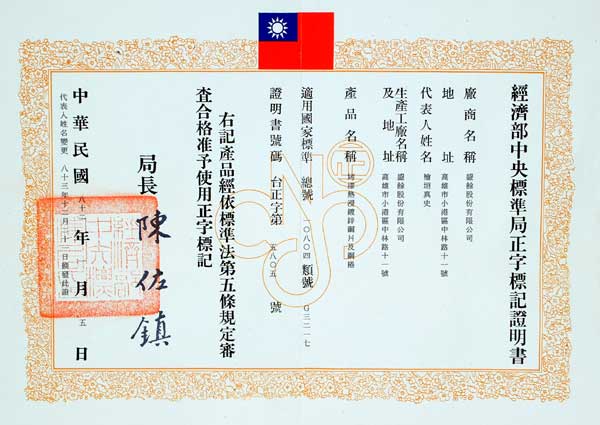 經濟部中央標準局正字標記證明書
廠商名稱 盛餘股份有限公司
地址 高雄市小港區中林路十一號
代表人姓名 檜垣真史
生產工廠名稱及地址 盛餘股份有限公司 高雄市小港區中林路十一號
產品名稱 烤漆熱浸鍍鋅鋼片及鋼捲
適用國家標準 總號 一○八○四 類號 G三二一七
證明書號碼 台正字第 五八○五 號
右記產品經依標準法第五條規定審
查合格准予使用正字標記
局長 陳佐鎮
中華民國 八十二 年 月 五 日
代表人姓名變更 八十三年十二月二十二日換發此證